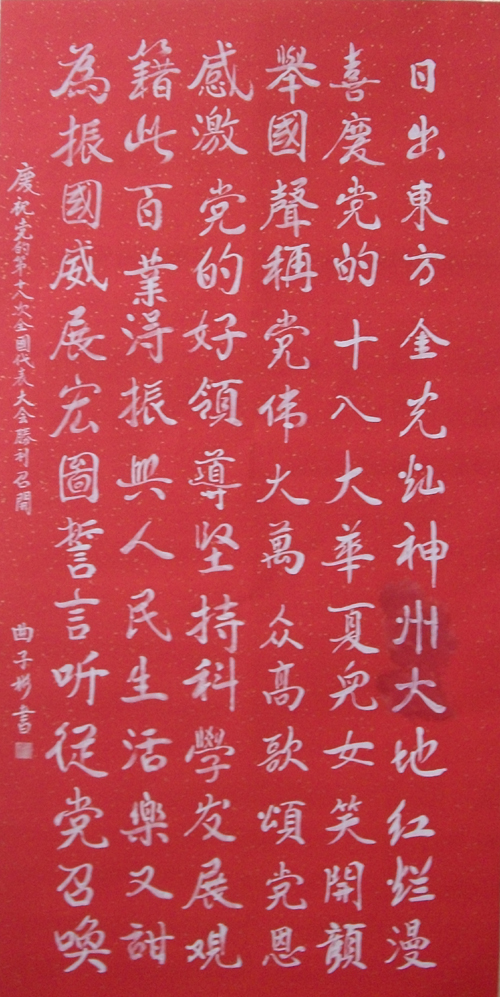 日出東方金光灿神州大地红烂漫
喜慶党的十八大華夏兒女笑開顏
舉國聲稱党伟大萬众高歌頌党恩
感激党的好領導坚持科學发展观
籍此百業得振興人民生活樂又甜
為振國威展宏圖誓言听従党召喚
慶祝党的第十八次全國代表大会勝利召開
曲子彬書